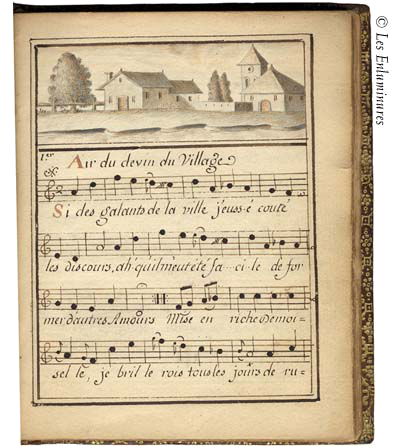 1.er
Air du devin du Village
Si des galants de la ville j'euss-é couté
les discours, ah qu'il m'eut été fa-ci-le de for
mer d'autres Amours Mise en riche Demoi-
sel le, je bril le rois tous les jours de ru-
© Les Enluminures